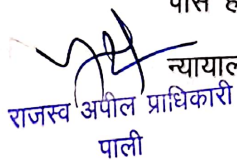 पास ह
न्यायाल
राजस्व अपील प्राधिकारी
पाली